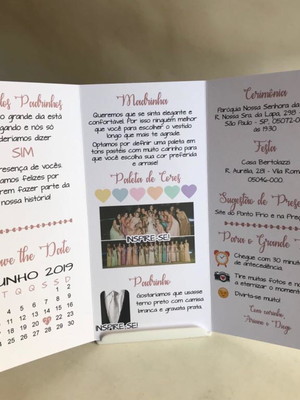 dos Padrinhos
grande dia está
gando e nós só
deríamos dizer
SIM
resença de vocês.
amos felizes por
rem fazer parte da
nossa história!
ve the Date
UNHO 2019
T Q Q S S
1
4 5 6 7 8
11 12 13 14 15
18 19 20 21 22
25 26 27 28 29
Madrinha
Queremos que se sinta elegante e
confortável. Por isso ninguém melhor
que você para escolher o vestido
longo que mais te agrade.
Optamos por definir uma paleta em
tons pastéis com muito carinho para
que você escolha sua cor preferida
e arrase!
Paleta de Cores
INSPIRE-SE!
Padrinho
Gostaríamos que usasse
terno preto com camisa
branca e gravata prata.
INSPIRE-SE!
Cerimônia
Paróquia Nossa Senhora da
R. Nossa Sra. da Lapa, 298
São Paulo - SP, 05072-0
às 19:30
Festa
Casa Bertolazzi
R. Aurélia, 281 - Vila Rom
05046-000
Sugestão de Prese
Site do Ponto Frio e na Pre
Para o Grande
Chegue com 30 minu
de antecedência.
Tire muitas fotos e no
a eternizar o momen
Divirta-se muito!
Com carinho,